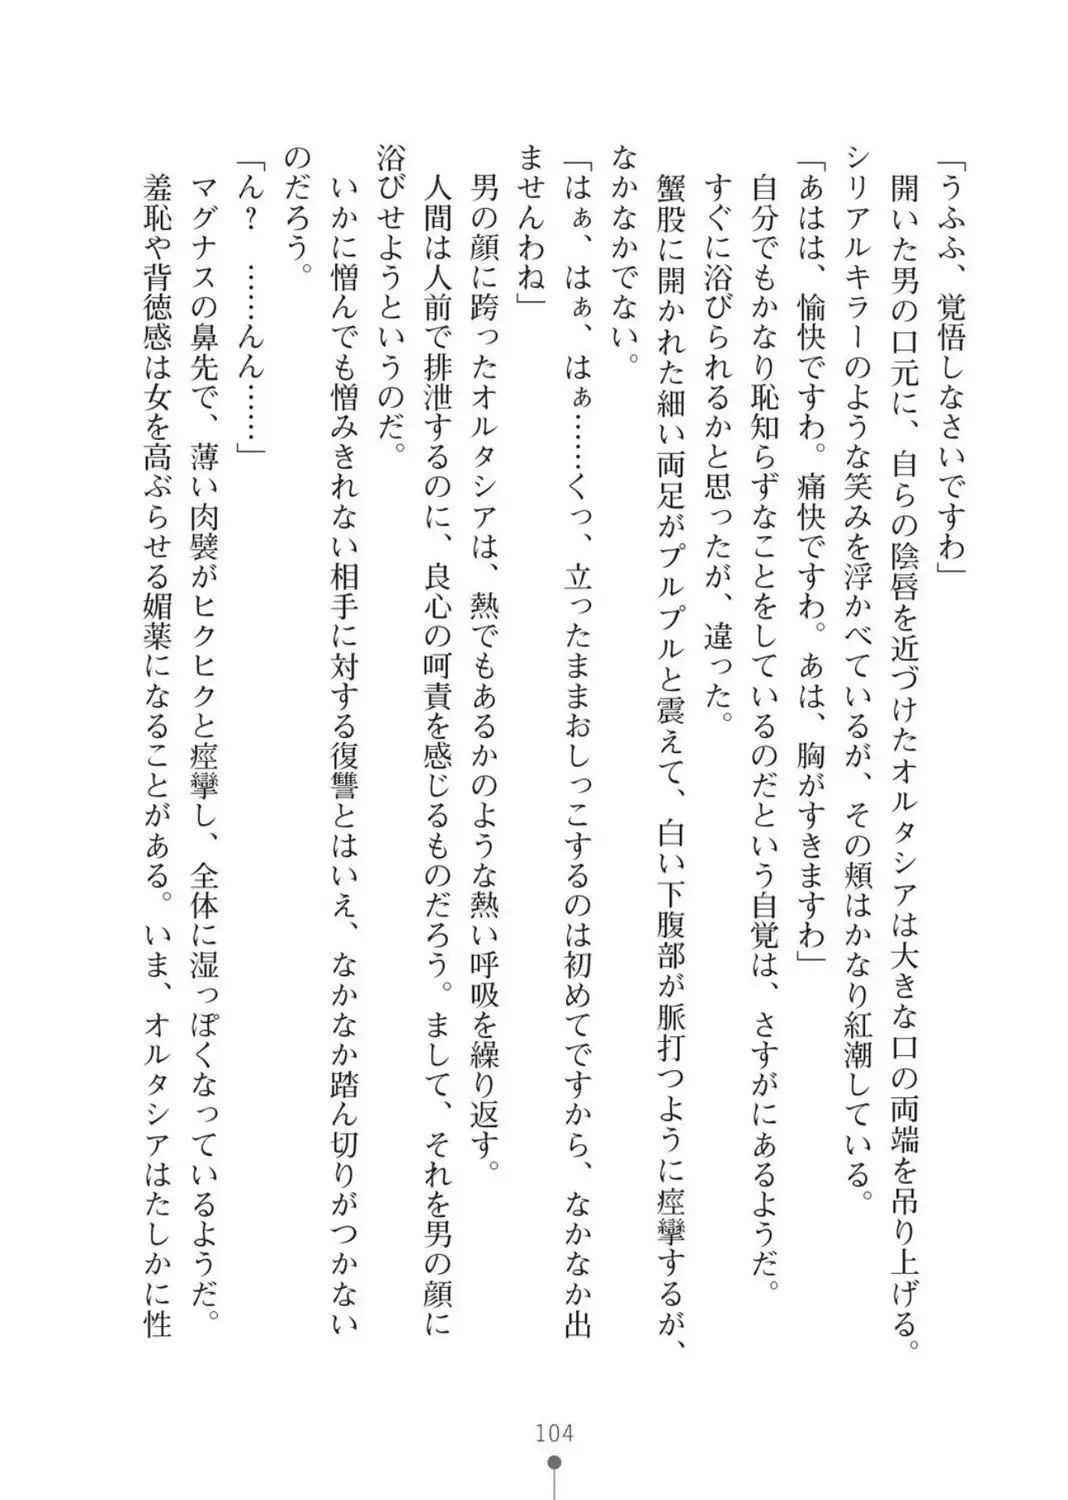 「うふふ、覚悟しなさいですわ」
開いた男の口元に、自らの陰唇を近づけたオルタシアは大きな口の両端を吊り上げる。
シリアルキラーのような笑みを浮かべているが、その頬はかなり紅潮している。
「あはは、愉快ですわ。痛快ですわ。あは、胸がすきますわ」
自分でもかなり恥知らずなことをしているのだという自覚は、さすがにあるようだ。
すぐに浴びられるかと思ったが、違った。
蟹股に開かれた細い両足がプルプルと震えて、白い下腹部が脈打つように痙攣するが、
なかなかでない。
「はぁ、はぁ、はぁ……くっ、立ったままおしっこするのは初めてですから、なかなか出
ませんわね」
男の顔に跨ったオルタシアは、熱でもあるかのような熱い呼吸を繰り返す。
人間は人前で排泄するのに、良心の呵責を感じるものだろう。まして、それを男の顔に
浴びせようというのだ。
いかに憎んでも憎みきれない相手に対する復讐とはいえ、なかなか踏ん切りがつかない
のだろう。
「ん？　……んん……」
マグナスの鼻先で、薄い肉襞がヒクヒクと痙攣し、全体に湿っぽくなっているようだ。
羞恥や背徳感は女を高ぶらせる媚薬になることがある。いま、オルタシアはたしかに性
104